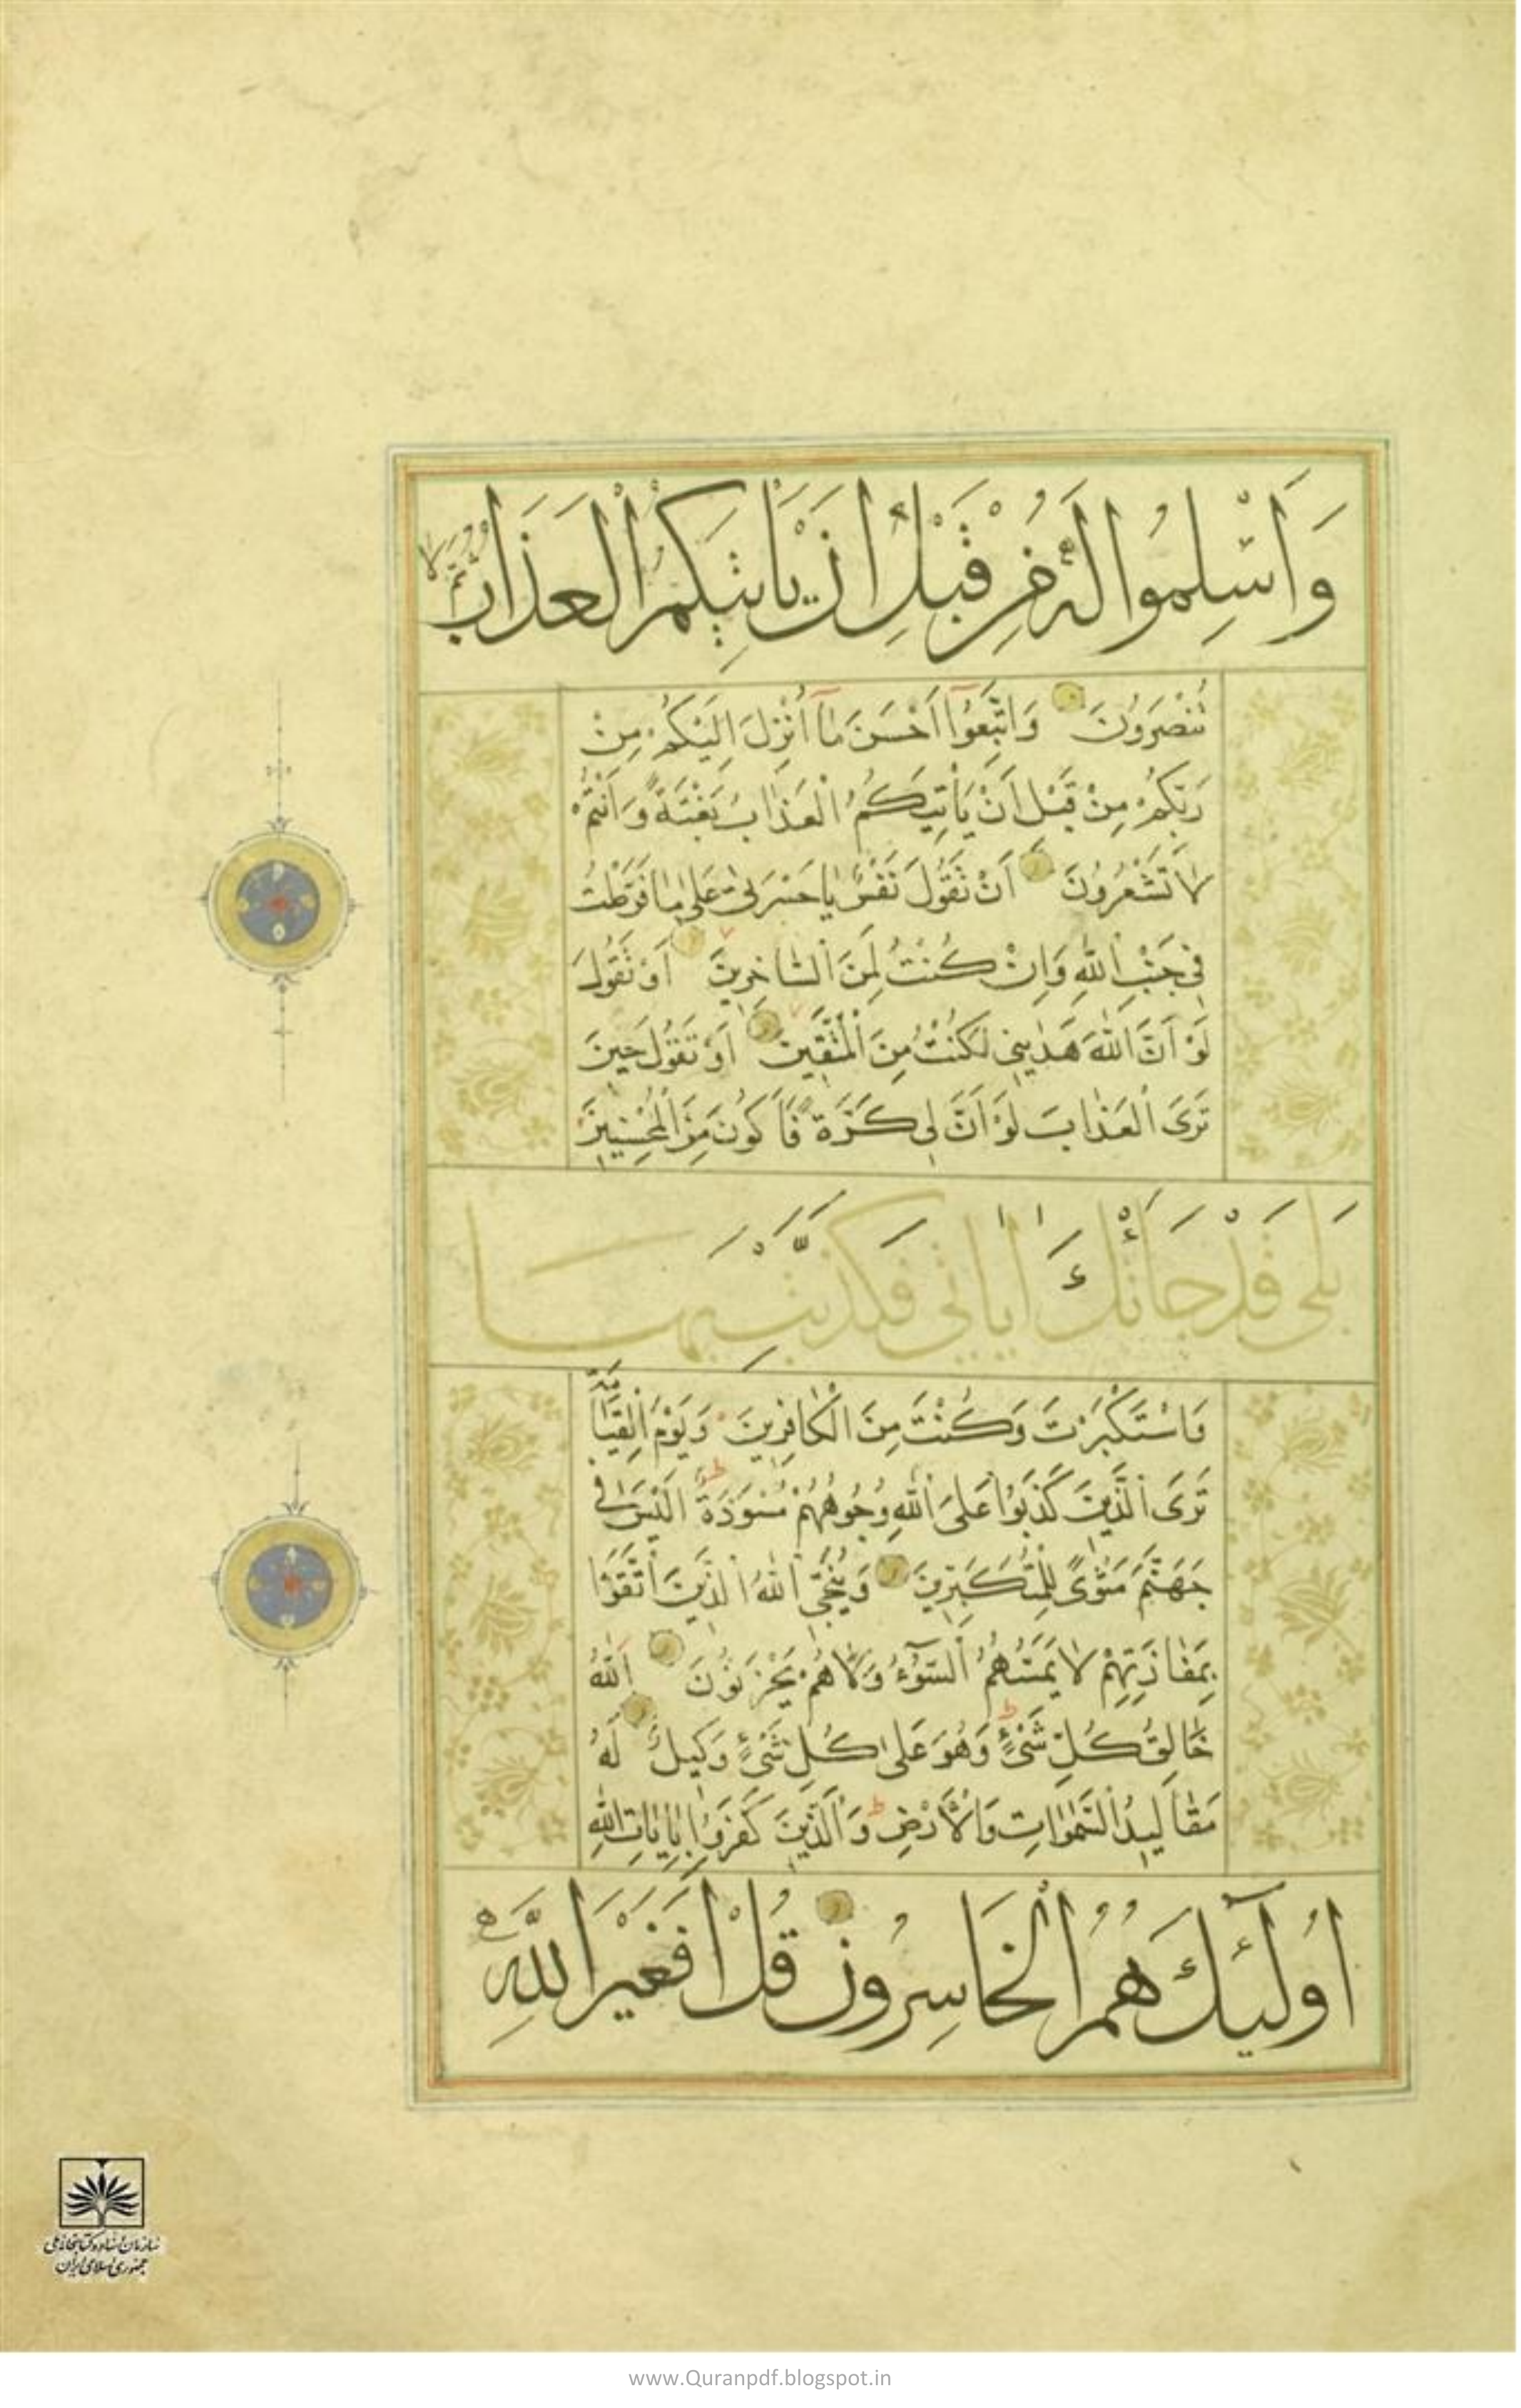 وَاَسْلِمُوا لَهُ مِنْ قَبْلِ اَنْ يَاْتِيَكُمُ الْعَذَابُ ثُمَّ لَا
تُنْصَرُونَ وَاتَّبِعُوا اَحْسَنَ مَا اُنْزِلَ اِلَيْكُمْ مِنْ
رَبِّكُمْ مِنْ قَبْلِ اَنْ يَاْتِيَكُمُ الْعَذَابُ بَغْتَةً وَاَنْتُمْ
لَا تَشْعُرُونَ اَنْ تَقُولَ نَفْسٌ يَا حَسْرَتٰى عَلٰى مَا فَرَّطْتُ
فِي جَنْبِ اللّٰهِ وَاِنْ كُنْتُ لَمِنَ السَّاخِرِينَ اَوْ تَقُولَ
لَوْ اَنَّ اللّٰهَ هَدٰينِي لَكُنْتُ مِنَ الْمُتَّقِينَ اَوْ تَقُولَ حِينَ
تَرَى الْعَذَابَ لَوْ اَنَّ لِي كَرَّةً فَاَكُونَ مِنَ الْمُحْسِنِينَ
بَلٰى قَدْ جَاءَتْكَ اٰيَاتِي فَكَذَّبْتَ بِهَا
وَاسْتَكْبَرْتَ وَكُنْتَ مِنَ الْكَافِرِينَ وَيَوْمَ الْقِيَامَةِ
تَرَى الَّذِينَ كَذَبُوا عَلَى اللّٰهِ وُجُوهُهُمْ مُسْوَدَّةٌ اَلَيْسَ فِي
جَهَنَّمَ مَثْوًى لِلْمُتَكَبِّرِينَ وَيُنَجِّي اللّٰهُ الَّذِينَ اتَّقَوْا
بِمَفَازَتِهِمْ لَا يَمَسُّهُمُ السُّوٓءُ وَلَا هُمْ يَحْزَنُونَ اَللّٰهُ
خَالِقُ كُلِّ شَيْءٍ وَهُوَ عَلٰى كُلِّ شَيْءٍ وَكِيلٌ لَهُ
مَقَالِيدُ السَّمٰوَاتِ وَالْاَرْضِ وَالَّذِينَ كَفَرُوا بِاٰيَاتِ اللّٰهِ
اُولٰٓئِكَ هُمُ الْخَاسِرُونَ قُلْ اَفَغَيْرَ اللّٰهِ
سازمان اسناد و کتابخانه ملی
جمهوری اسلامی ایران
www.Quranpdf.blogspot.in